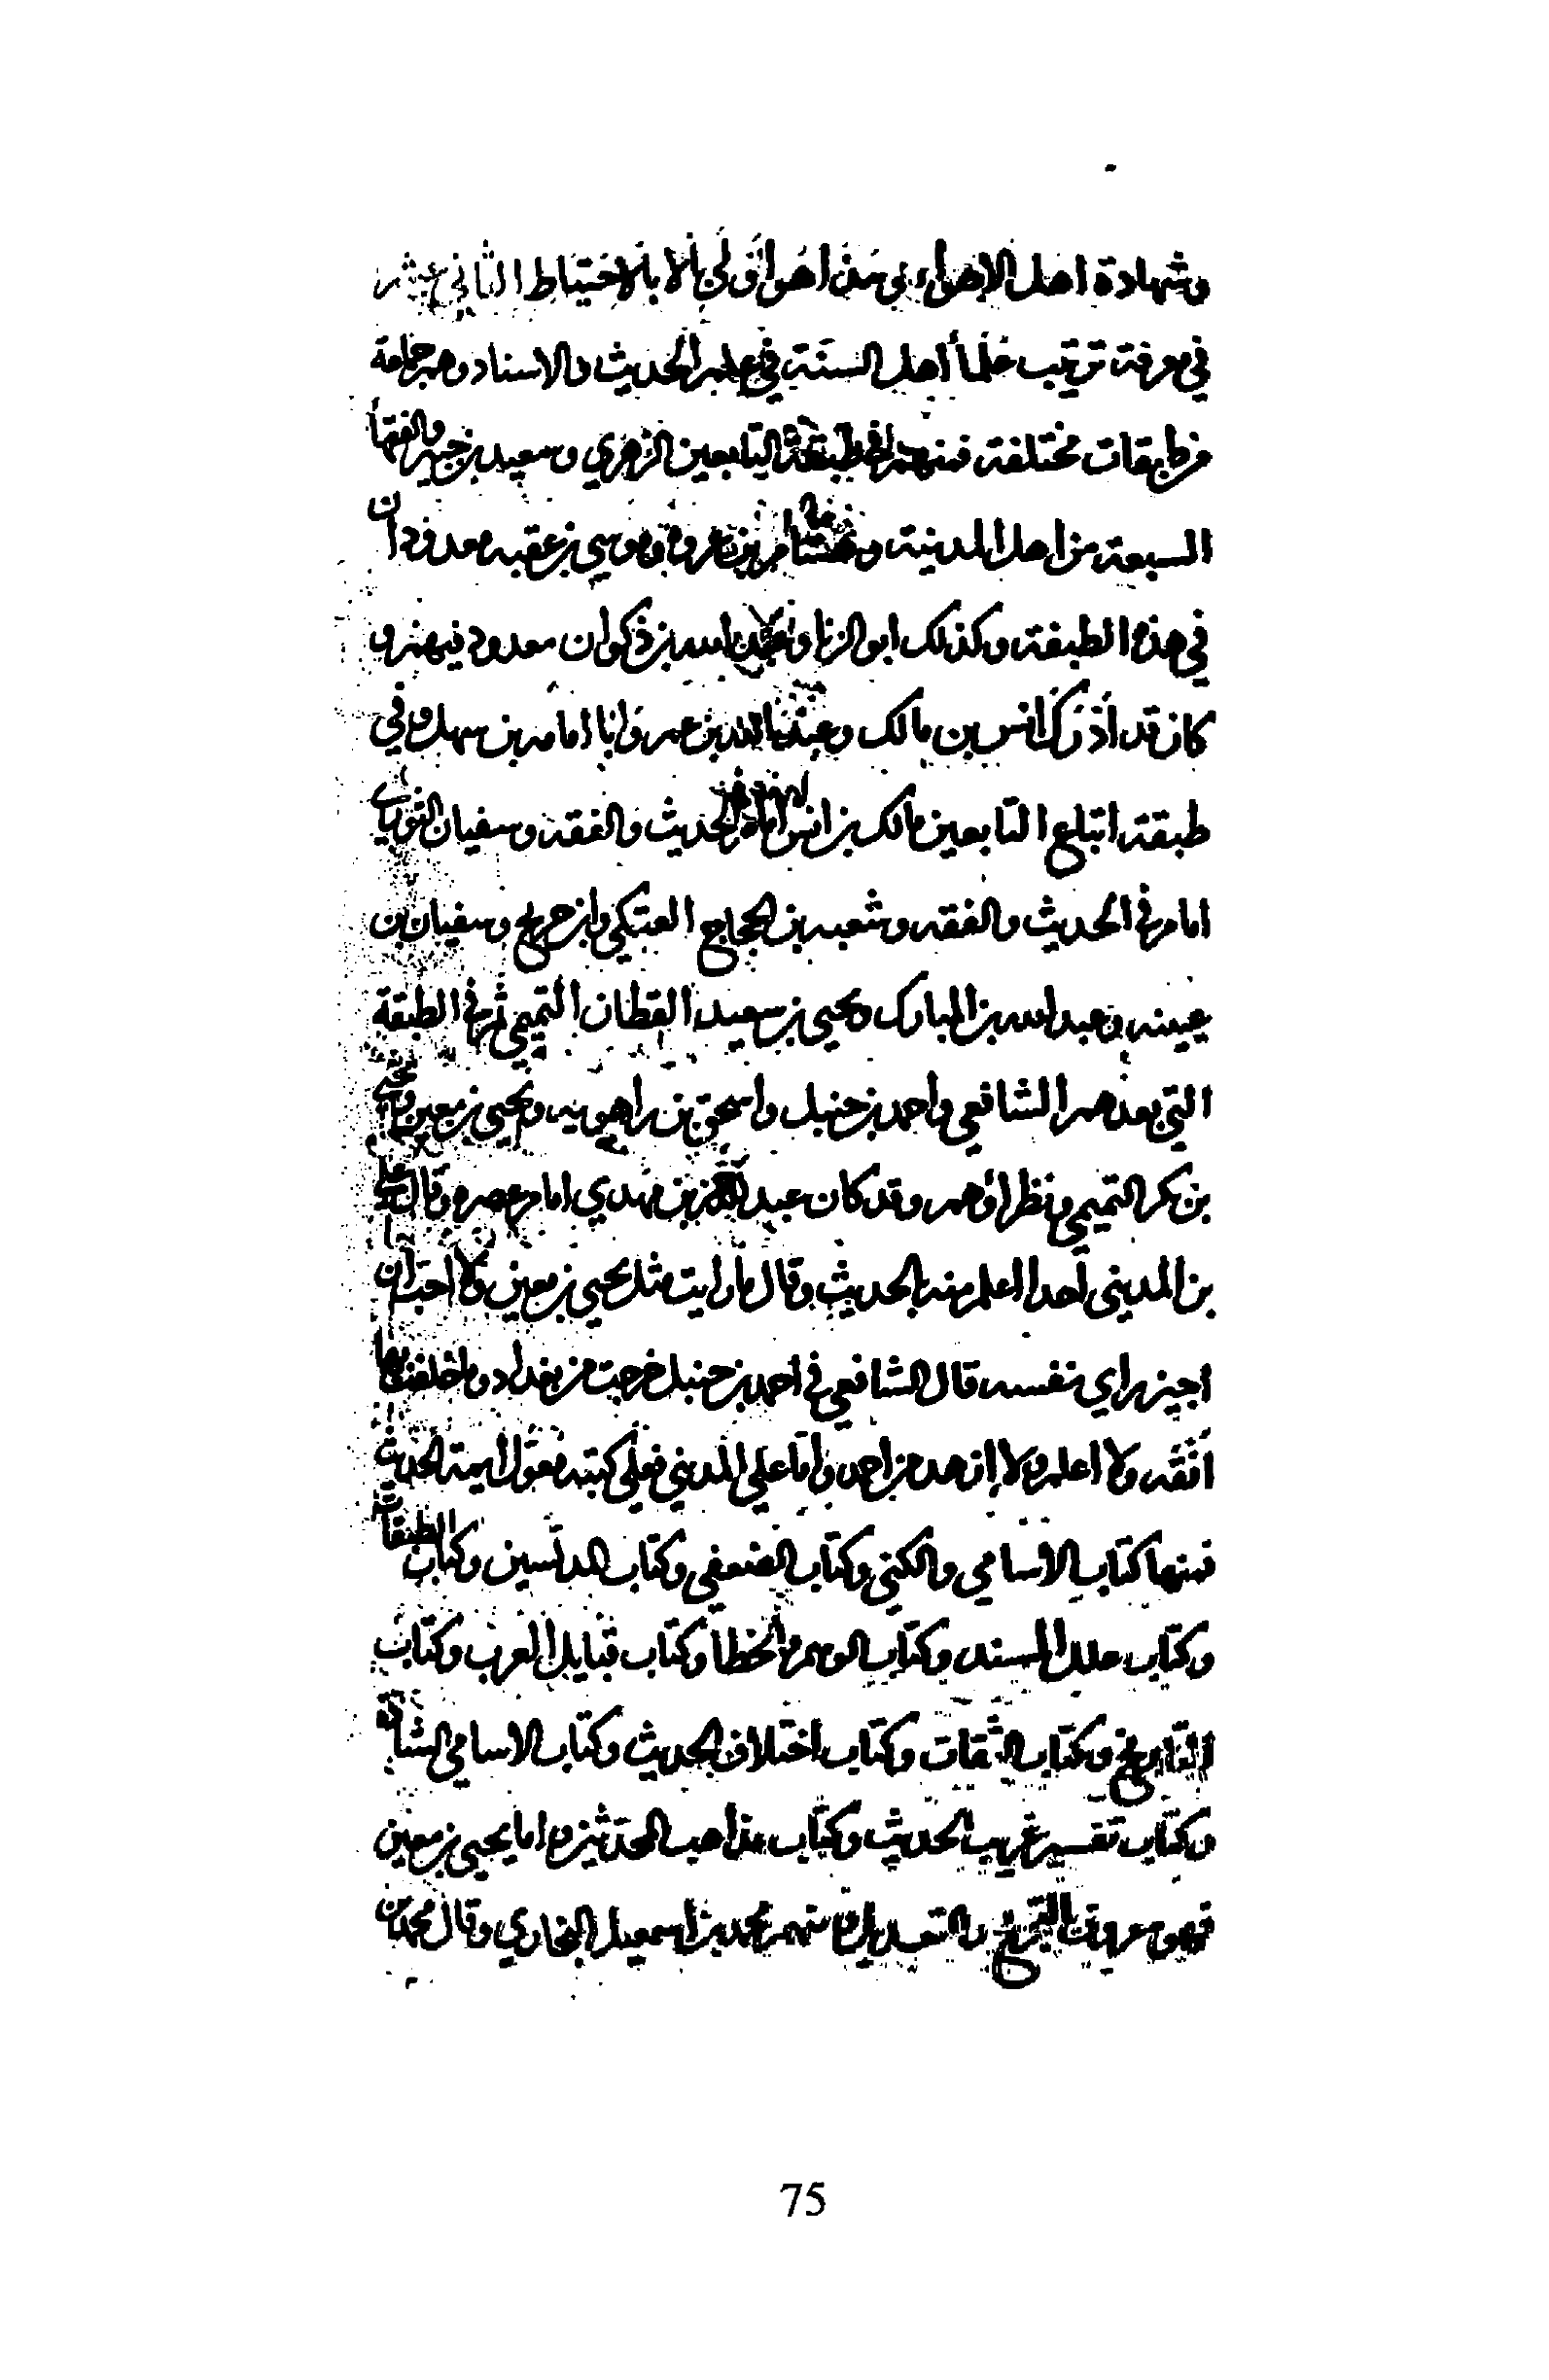 وشهادة اهل الاهواء في اهوا اولي بالاحتياط الثاني عشر
في معرفة ترتيب علما أهل السنة في علم الحديث والاسناد وهم جماعة
من طبقات مختلفة فمنهم في طبقة التابعين الزهري وسعيد بن جبير والفقها
السبعة من اهل المدينة وهشام بن عروة وموسي بن عقبه معدودان
في هذه الطبقة وكذلك ابو الزناد عبد الله بن ذكوان معدود فيهم و
كان قد أدرك انس بن مالك وعبد الله بن عمر وابا امامه بن سهل وفي
طبقة اتباع التابعين مالك بن انس الحديث والفقه وسفيان الثوري
امام في الحديث والفقه وشعبه بن الحجاج العتكي وابن جريج وسفيان بن
عيينه وعبد الله بن المبارك ويحيي بن سعيد القطان التميمي ثم في الطبقة
التي بعدهم الشافعي واحمد بن حنبل واسحق بن راهويه ويحيي بن معين ويحيي
بن بكر التميمي ونظراؤهم وقد كان عبد بن مهدي امام عصره وقال علي
بن المديني احدا اعلم منه بالحديث وقال ما رايت مثل يحيي بن معين ولا احب ان
اجيز راي نفسه قال الشافعي في احمد بن حنبل خرجت من بغداد وما خلفت بها
أتقه ولا اعلم ولا ازهد من احمد واما علي المديني فعلي كتبه معول ايمة الحديث
فمنها كتاب الاسامي والكني وكتاب الضعفي وكتاب المدلسين وكتاب الطبقات
وكتاب علل المسند وكتاب الوهم والخطا وكتاب قبايل العرب وكتاب
التاريخ وكتاب الثقات وكتاب اختلاف الحديث وكتاب الاسامي الشاذة
وكتاب تفسير غريب الحديث وكتاب مذاهب المحدثين واما يحيي بن معين
فهو معروف بالتجريح والتعديل ومنهم محمد بن اسمعيل البخاري وقال محمد بن
75